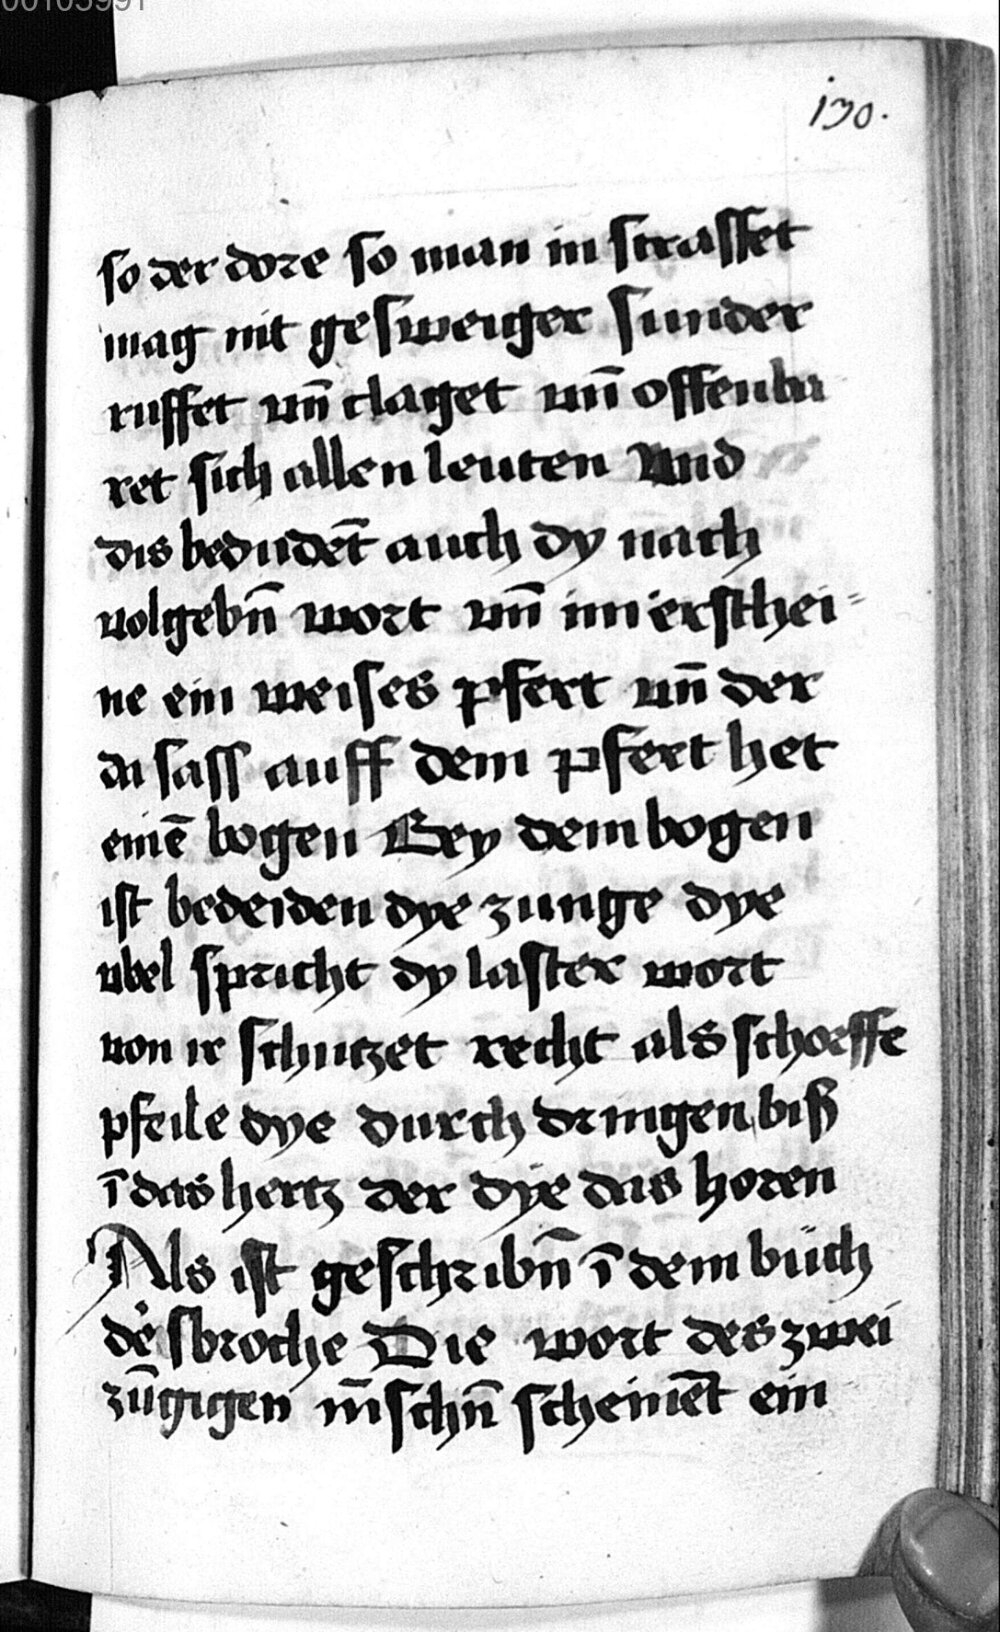 00103991
130.
so der dore so man in strasset
mag nit gesweiger sunder
ruffet vnn̄ claget vnn̄ offenba
ret sich allen leuten Und
dis bedudēt auch dy nach
volgebn̄ wort vnn̄ im erschei-
ne ein weises pfert vnn̄ der
da sass auff dem pfert het
einē bogen Bey dem bogen
ist bedeiden dye zunge dye
vbel spricht dy laster wort
von ir schutzet recht als schorffe
pfeile dye durch dringen biß
ī das hertz der dye das horen
Als ist geschribn̄ ī dem buch
der sbroche Die wort des zwei
zūgigen mēschn̄ scheinēt ein